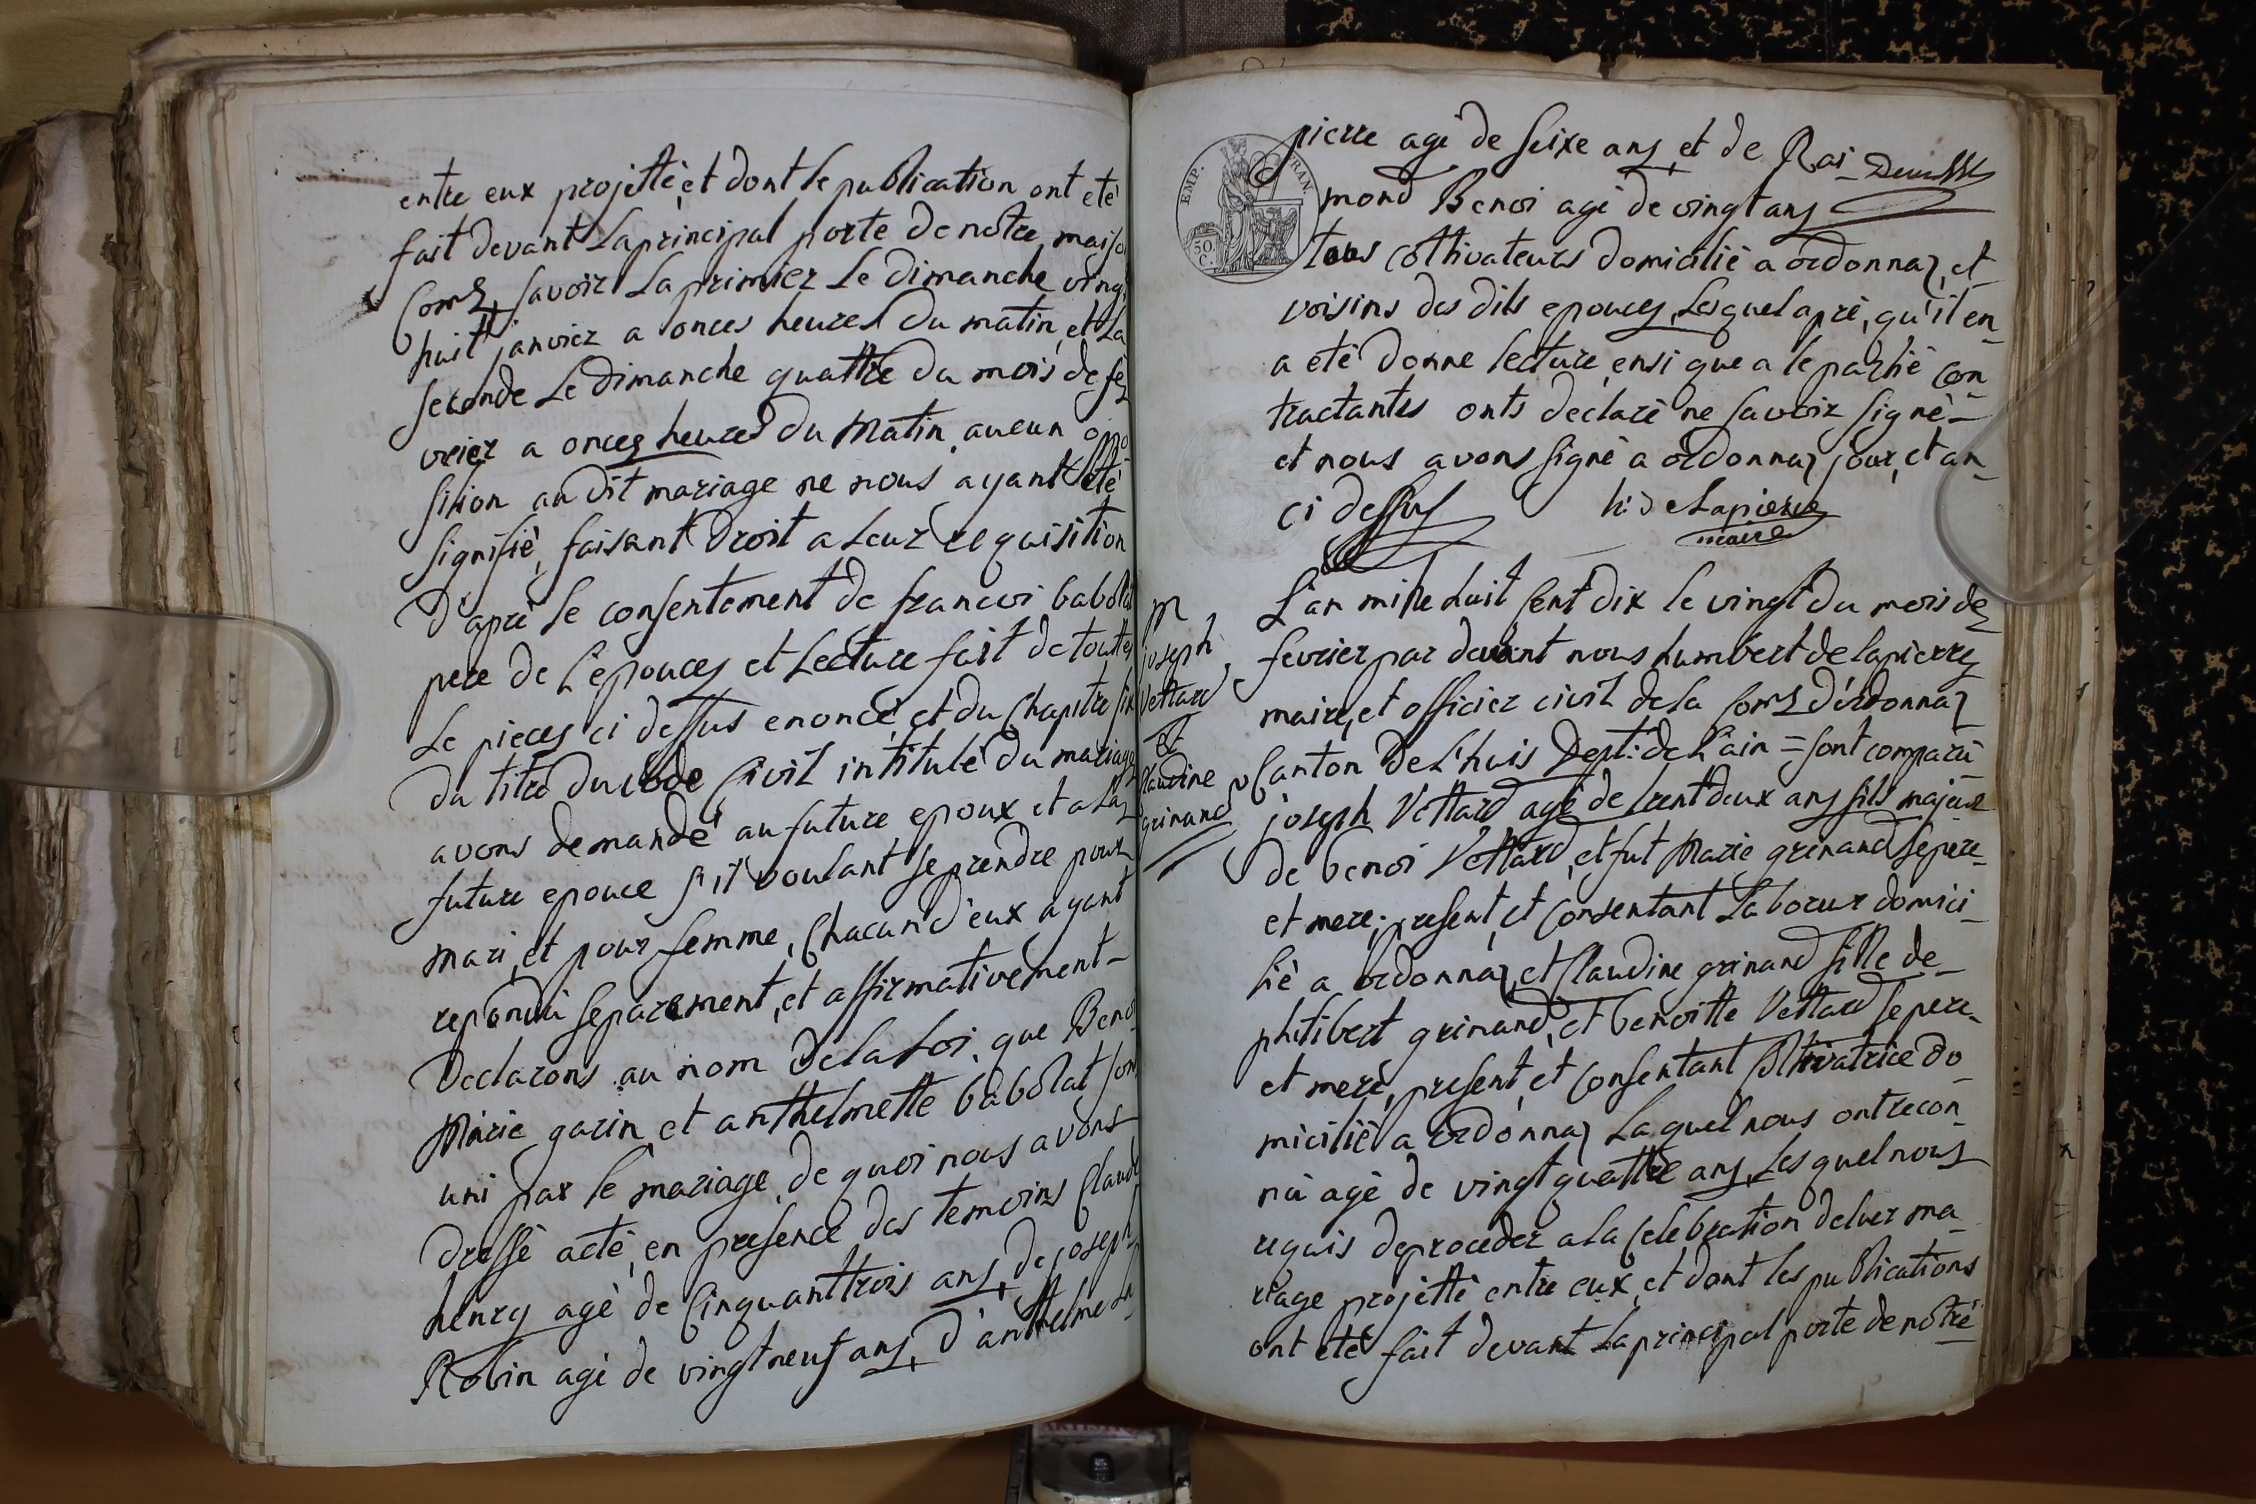 entre eux projetté, et dont le publication ont eté
fait devant La principal porte de nôtre maiso
Com.e, savoir La primier Le dimanche vingt
huit janvier a onces heures du matin, et La
seconde Le dimanche quattre du mois de fé
vrier a onces heures du Matin, aucun opo
sition au dit mariage ne nous ayant eté
signifié, faisant Droit a Leur requisition
D'aprè le consentement de francoi babolat
pere de L'epouces et Lecture fait de touttes
Le pieces ci dessus enoncé, et du Chapitre six
du titre du Code Civil intitulé du mariage
avons demandé au future epoux et a La
future epouce s'il voulant se prendre pour
mari, et pour femme, Chacun d'eux ayant
repondû separement, et affirmativement -
Declarons au nom de la Loi, que Benoi
Marie garin et anthelmette babolat son
uni par le mariage, de quoi nous avons
dressé acté, en presence des temoins Claude
henry agé de Cinquanttrois ans, de joseph
Robin agé de vingt neuf ans, d'anthelme La
pierre agé de seixe ans, et de Rai-
mond Benoi agé de vingt ans
EMP. FRAN.
50 C.
tous Coltivateurs domicilié a ordonnaz, et
voisins des dits epouces, Lesquel aprè, qu'il en
a eté donne lecture, ensi que a le partié con
tractantes onts declaré ne savoir signé -
et nous avons signé a ordonnaz jour, et an -
ci dessus h: de Lapierre
maire
M
joseph
Vettard
Et
Claudine
grinand
L'an mille huit Cent dix le vingt du mois de
fevrier par devant nous humbert de lapierre
maire, et officier civil de la Com.e D'ordonnaz
Canton de L'huis Dept: de L'ain = sont comparû
joseph Vettard agé de trent deux ans fils majeur
de benoi Vettard, et fut Marie grinand se pere -
et mere; present, et Consentant Laboreur domici -
lié a ordonnaz, et Claudine grinand fille de -
philibert grinand, et benoitte Vettard se pere -
et mere, present, et Consentant Coltivatrice do -
micilié a ordonnaz Laquel nous ont recon -
nû agé de vingt quattre ans, Lesquel nous
requis de proceder a la Celebration de luer ma -
riage projetté entre eux, et dont les publications
ont eté fait devant La principal porte de nôtre